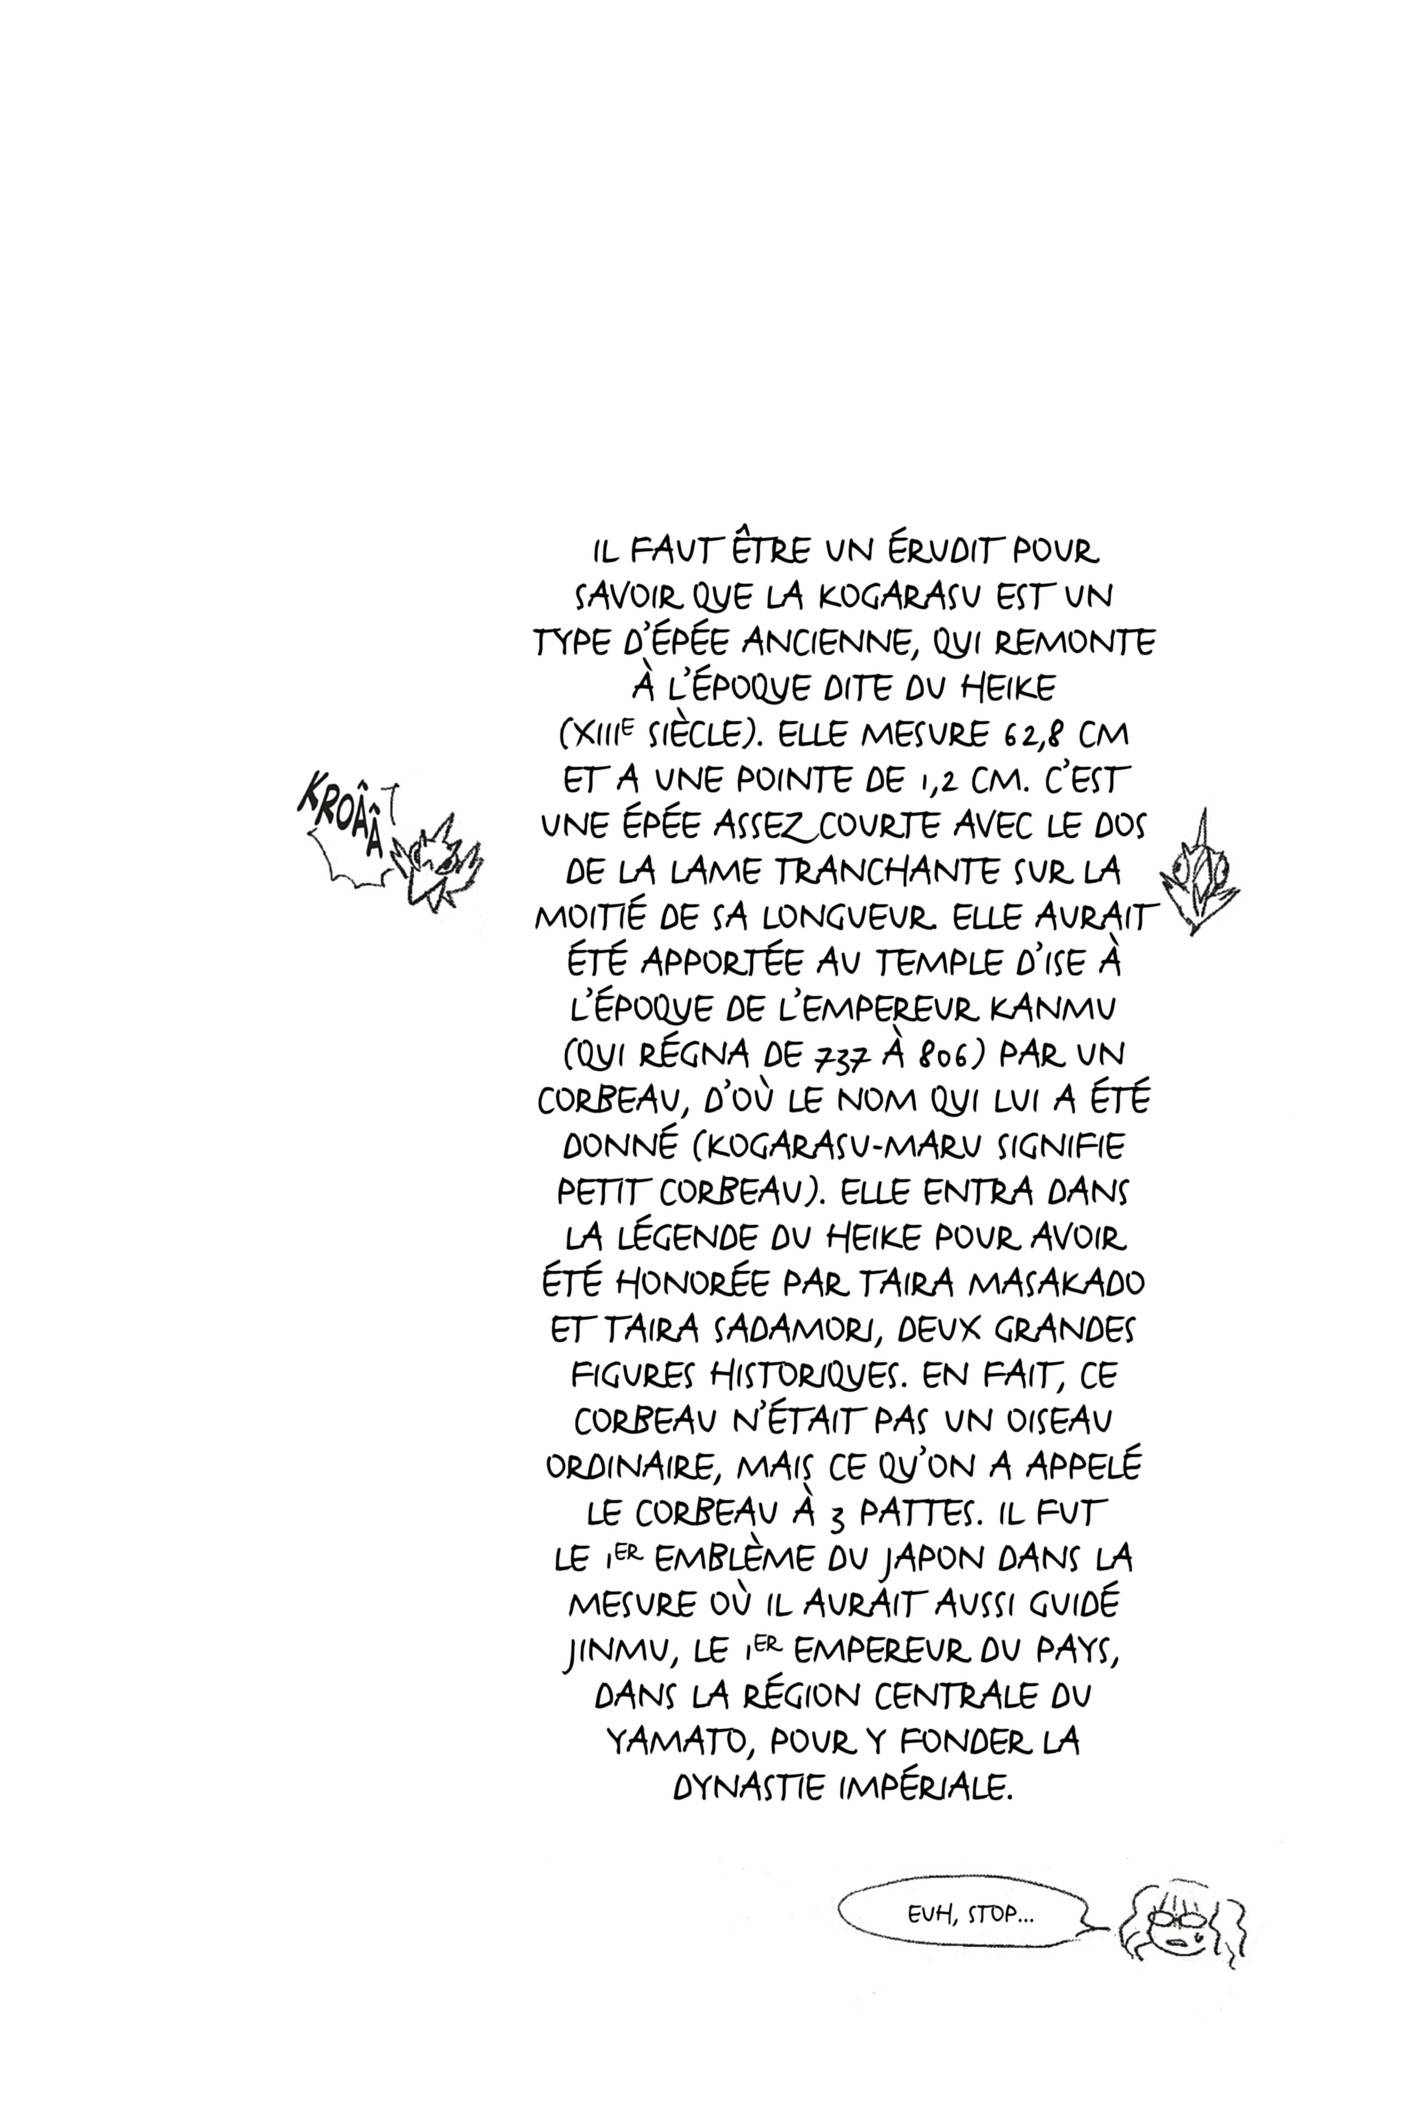 IL FAUT ÊTRE UN ÉRUDIT POUR
SAVOIR QUE LA KOGARASU EST UN
TYPE D'ÉPÉE ANCIENNE, QUI REMONTE
À L'ÉPOQUE DITE DU HEIKE
(XIIIE SIÈCLE). ELLE MESURE 62,8 CM
ET A UNE POINTE DE 1,2 CM. C'EST
UNE ÉPÉE ASSEZ COURTE AVEC LE DOS
DE LA LAME TRANCHANTE SUR LA
MOITIÉ DE SA LONGUEUR. ELLE AURAIT
ÉTÉ APPORTÉE AU TEMPLE D'ISE À
L'ÉPOQUE DE L'EMPEREUR KANMU
(QUI RÉGNA DE 737 À 806) PAR UN
CORBEAU, D'OÙ LE NOM QUI LUI A ÉTÉ
DONNÉ (KOGARASU-MARU SIGNIFIE
PETIT CORBEAU). ELLE ENTRA DANS
LA LÉGENDE DU HEIKE POUR AVOIR
ÉTÉ HONORÉE PAR TAIRA MASAKADO
ET TAIRA SADAMORI, DEUX GRANDES
FIGURES HISTORIQUES. EN FAIT, CE
CORBEAU N'ÉTAIT PAS UN OISEAU
ORDINAIRE, MAIS CE QU'ON A APPELÉ
LE CORBEAU À 3 PATTES. IL FUT
LE 1ER EMBLÈME DU JAPON DANS LA
MESURE OÙ IL AURAIT AUSSI GUIDÉ
JINMU, LE 1ER EMPEREUR DU PAYS,
DANS LA RÉGION CENTRALE DU
YAMATO, POUR Y FONDER LA
DYNASTIE IMPÉRIALE.
KROÂÂ
EUH, STOP...